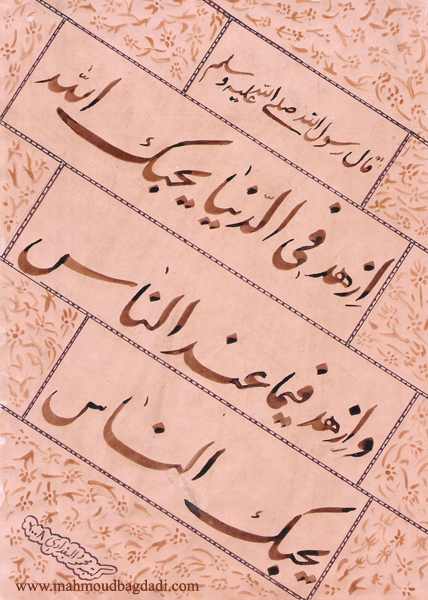 قال رسول الله صلى الله عليه وسلم
ازهد في الدّنيا يحبك الله
وازهد فيما عند الناس
يحبك الناس
www.mahmoudbagdadi.com